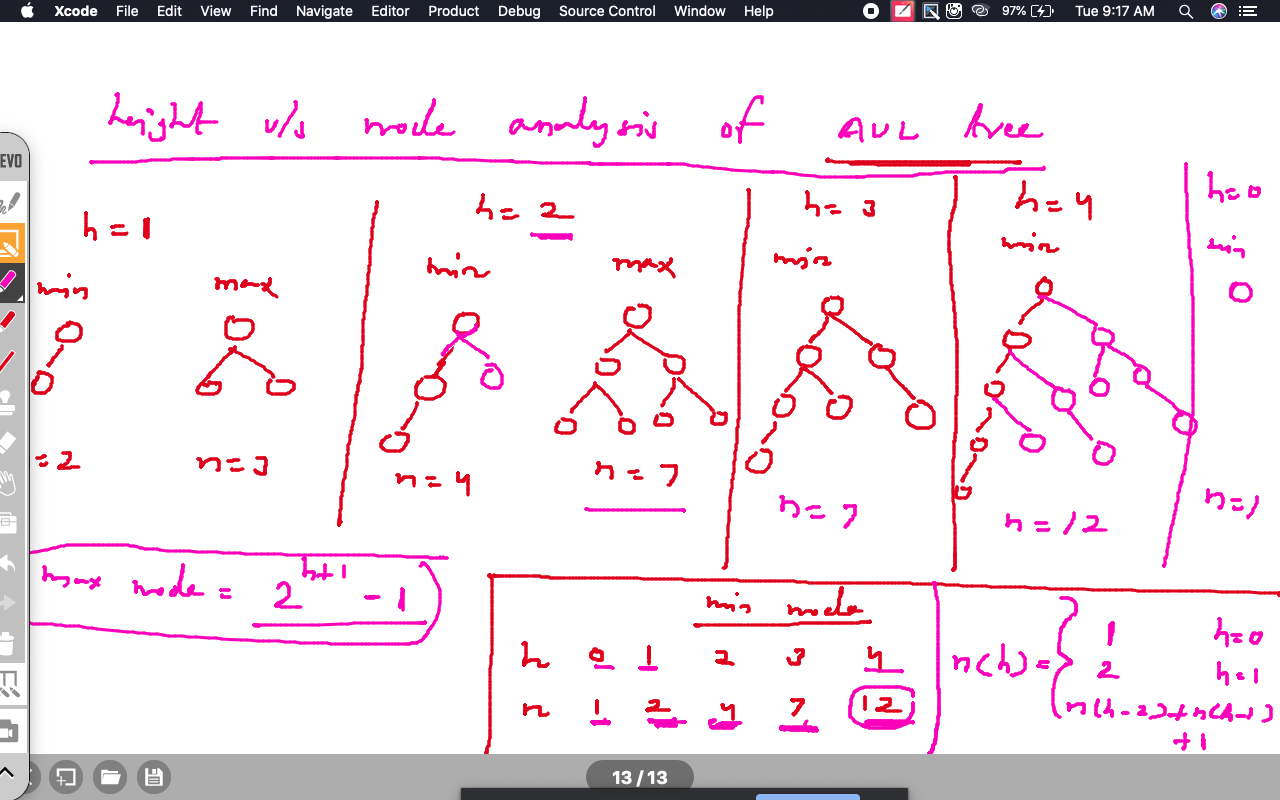 Xcode File Edit View Find Navigate Editor Product Debug Source Control Window Help 97% Tue 9:17 AM
height v/s node analysis of AVL tree
EVO
h = 1
min max
= 2 n = 3
h = 2
min max
n = 4 n = 7
h = 3
min
n = 7
h = 4
min
n = 12
h = 0
min
n = 1
max node = 2^{h+1} - 1
min node
h 0 1 2 3 4
n 1 2 4 7 12
n(h) = { 1 h=0
2 h=1
n(h-2)+n(h-1)
+1
13 / 13